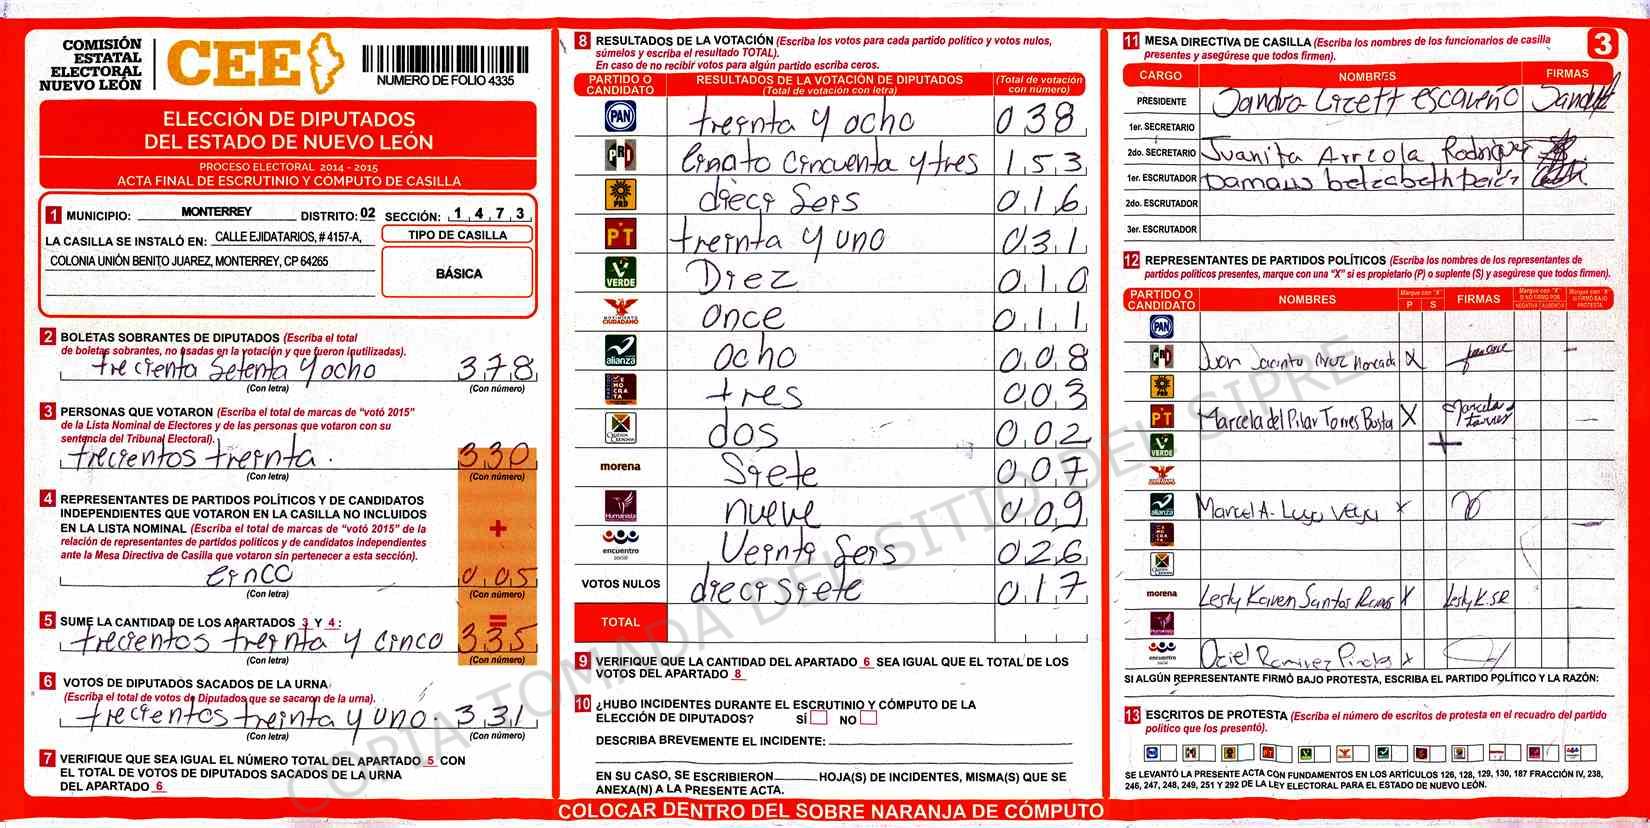 COMISIÓN
ESTATAL
ELECTORAL
NUEVO LEÓN
CEE
NUMERO DE FOLIO 4335
ELECCIÓN DE DIPUTADOS
DEL ESTADO DE NUEVO LEÓN
PROCESO ELECTORAL 2014 - 2015
ACTA FINAL DE ESCRUTINIO Y CÓMPUTO DE CASILLA
1 MUNICIPIO: MONTERREY DISTRITO: 02 SECCIÓN: 1 4 7 3
LA CASILLA SE INSTALÓ EN: CALLE EJIDATARIOS, # 4157-A,
COLONIA UNIÓN BENITO JUAREZ, MONTERREY, CP 64265
TIPO DE CASILLA
BÁSICA
2 BOLETAS SOBRANTES DE DIPUTADOS (Escriba el total
de boletas sobrantes, no usadas en la votación y que fueron inutilizadas).
trecienta Setenta y ocho 378
(Con letra) (Con número)
3 PERSONAS QUE VOTARON (Escriba el total de marcas de "votó 2015"
de la Lista Nominal de Electores y de las personas que votaron con su
sentencia del Tribunal Electoral).
trecientos treinta. 330
(Con letra) (Con número)
4 REPRESENTANTES DE PARTIDOS POLÍTICOS Y DE CANDIDATOS
INDEPENDIENTES QUE VOTARON EN LA CASILLA NO INCLUIDOS
EN LA LISTA NOMINAL (Escriba el total de marcas de "votó 2015" de la
relación de representantes de partidos políticos y de candidatos independientes
ante la Mesa Directiva de Casilla que votaron sin pertenecer a esta sección).
+
cinco 005
(Con letra) (Con número)
=
5 SUME LA CANTIDAD DE LOS APARTADOS 3 Y 4:
trecientos treinta y cinco 335
(Con letra) (Con número)
6 VOTOS DE DIPUTADOS SACADOS DE LA URNA
(Escriba el total de votos de Diputados que se sacaron de la urna).
trecientos treinta y uno. 331
(Con letra) (Con número)
7 VERIFIQUE QUE SEA IGUAL EL NÚMERO TOTAL DEL APARTADO 5 CON
EL TOTAL DE VOTOS DE DIPUTADOS SACADOS DE LA URNA
DEL APARTADO 6
8 RESULTADOS DE LA VOTACIÓN (Escriba los votos para cada partido político y votos nulos,
súmelos y escriba el resultado TOTAL).
En caso de no recibir votos para algún partido escriba ceros.
PARTIDO O CANDIDATO RESULTADOS DE LA VOTACIÓN DE DIPUTADOS (Total de votación con letra) (Total de votación con número)
PAN treinta y ocho 038
PRD ciento cincuenta y tres 153
PRD dieci Seis 016
PT treinta y uno 031
VERDE Diez 010
MOVIMIENTO CIUDADANO once 011
alianza ocho 008
DEMÓCRATA tres 003
dos 002
morena Siete 007
Humanista nueve 009
encuentro social Veinti Seis 026
VOTOS NULOS diecisiete 017
TOTAL
9 VERIFIQUE QUE LA CANTIDAD DEL APARTADO 6 SEA IGUAL QUE EL TOTAL DE LOS
VOTOS DEL APARTADO 8
10 ¿HUBO INCIDENTES DURANTE EL ESCRUTINIO Y CÓMPUTO DE LA
ELECCIÓN DE DIPUTADOS? SÍ NO
DESCRIBA BREVEMENTE EL INCIDENTE:
EN SU CASO, SE ESCRIBIERON HOJA(S) DE INCIDENTES, MISMA(S) QUE SE
ANEXA(N) A LA PRESENTE ACTA.
COLOCAR DENTRO DEL SOBRE NARANJA DE CÓMPUTO
11 MESA DIRECTIVA DE CASILLA (Escriba los nombres de los funcionarios de casilla
presentes y asegúrese que todos firmen).
3
CARGO NOMBRES FIRMAS
PRESIDENTE Sandra Lizett escareño
1er. SECRETARIO
2do. SECRETARIO Juanita Arreola Rodriguez
1er. ESCRUTADOR Damaris betzabeth
2do. ESCRUTADOR
3er. ESCRUTADOR
12 REPRESENTANTES DE PARTIDOS POLÍTICOS (Escriba los nombres de los representantes de
partidos políticos presentes, marque con una "X" si es propietario (P) o suplente (S) y asegúrese que todos firmen).
PARTIDO O CANDIDATO NOMBRES Marque con "X" P S FIRMAS Marque con "X" SI NO FIRMÓ POR NEGATIVA AUSENCIA Marque con "X" SI FIRMÓ BAJO PROTESTA
PAN
PRD Juan Jacinto Cruz Moncada X
PRD
PT Marcela del Pilar Torres Busta X Marcela torres
VERDE
alianza Marcel A. Lugo Vega X
morena Lesly Karen Santos Ramos X Lesly K.SR
Humanista
encuentro social Oziel Ramirez X
SI ALGÚN REPRESENTANTE FIRMÓ BAJO PROTESTA, ESCRIBA EL PARTIDO POLÍTICO Y LA RAZÓN:
13 ESCRITOS DE PROTESTA (Escriba el número de escritos de protesta en el recuadro del partido
político que los presentó).
SE LEVANTÓ LA PRESENTE ACTA CON FUNDAMENTOS EN LOS ARTÍCULOS 126, 128, 129, 130, 187 FRACCIÓN IV, 238,
246, 247, 248, 249, 251 Y 292 DE LA LEY ELECTORAL PARA EL ESTADO DE NUEVO LEÓN.
COPIA TOMADA DEL SITIO DEL SIPRE